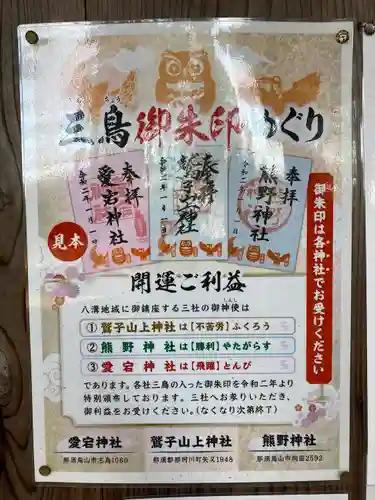 さんちょう
三鳥御朱印めぐり
奉拝
愛宕神社
令和二年一月一日
奉拝
鷲子山上神社
令和二年一月一日
奉拝
熊野神社
見本
御朱印は各神社でお受けください
開運ご利益
八溝地域に御鎮座する三社の御神使は
しんし
①鷲子山上神社は【不苦労】ふくろう
②熊野神社は【勝利】やたがらす
③愛宕神社は【飛躍】とんび
であります。各社三鳥の入った御朱印を令和二年より
特別頒布しております。三社へお参りいただき、
御利益をお受けください。(なくなり次第終了)
愛宕神社
那須烏山市志鳥1060
鷲子山上神社
那須郡那珂川町矢又1948
熊野神社
那須烏山市向田2592